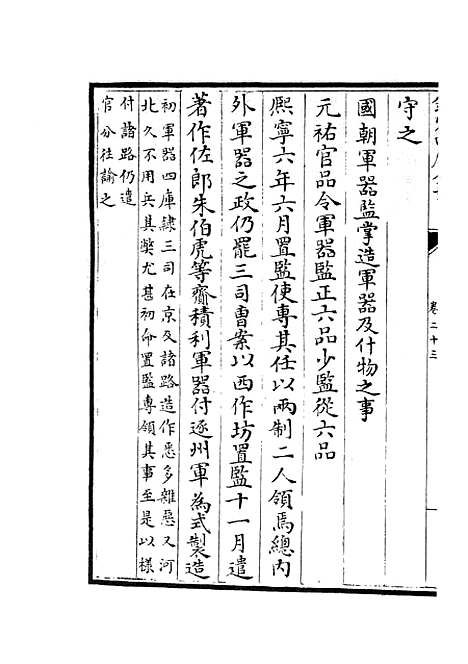 卷二十三
守之
國朝軍器監掌造軍器及什物之事
元祐官品令軍器監正六品少監從六品
熈寧六年六月置監使專其任以兩制二人領焉總内
外軍器之政仍罷三司曹案以西作坊置監十一月遣
著作佐郎朱伯虎等齎積利軍器付逐州軍為式製造
初軍器四庫隸三司在京及諸路造作惡多雜惡又河
北久不用兵其弊尤甚初命置監專領其事至是以様
付諸路仍遣
官分往諭之